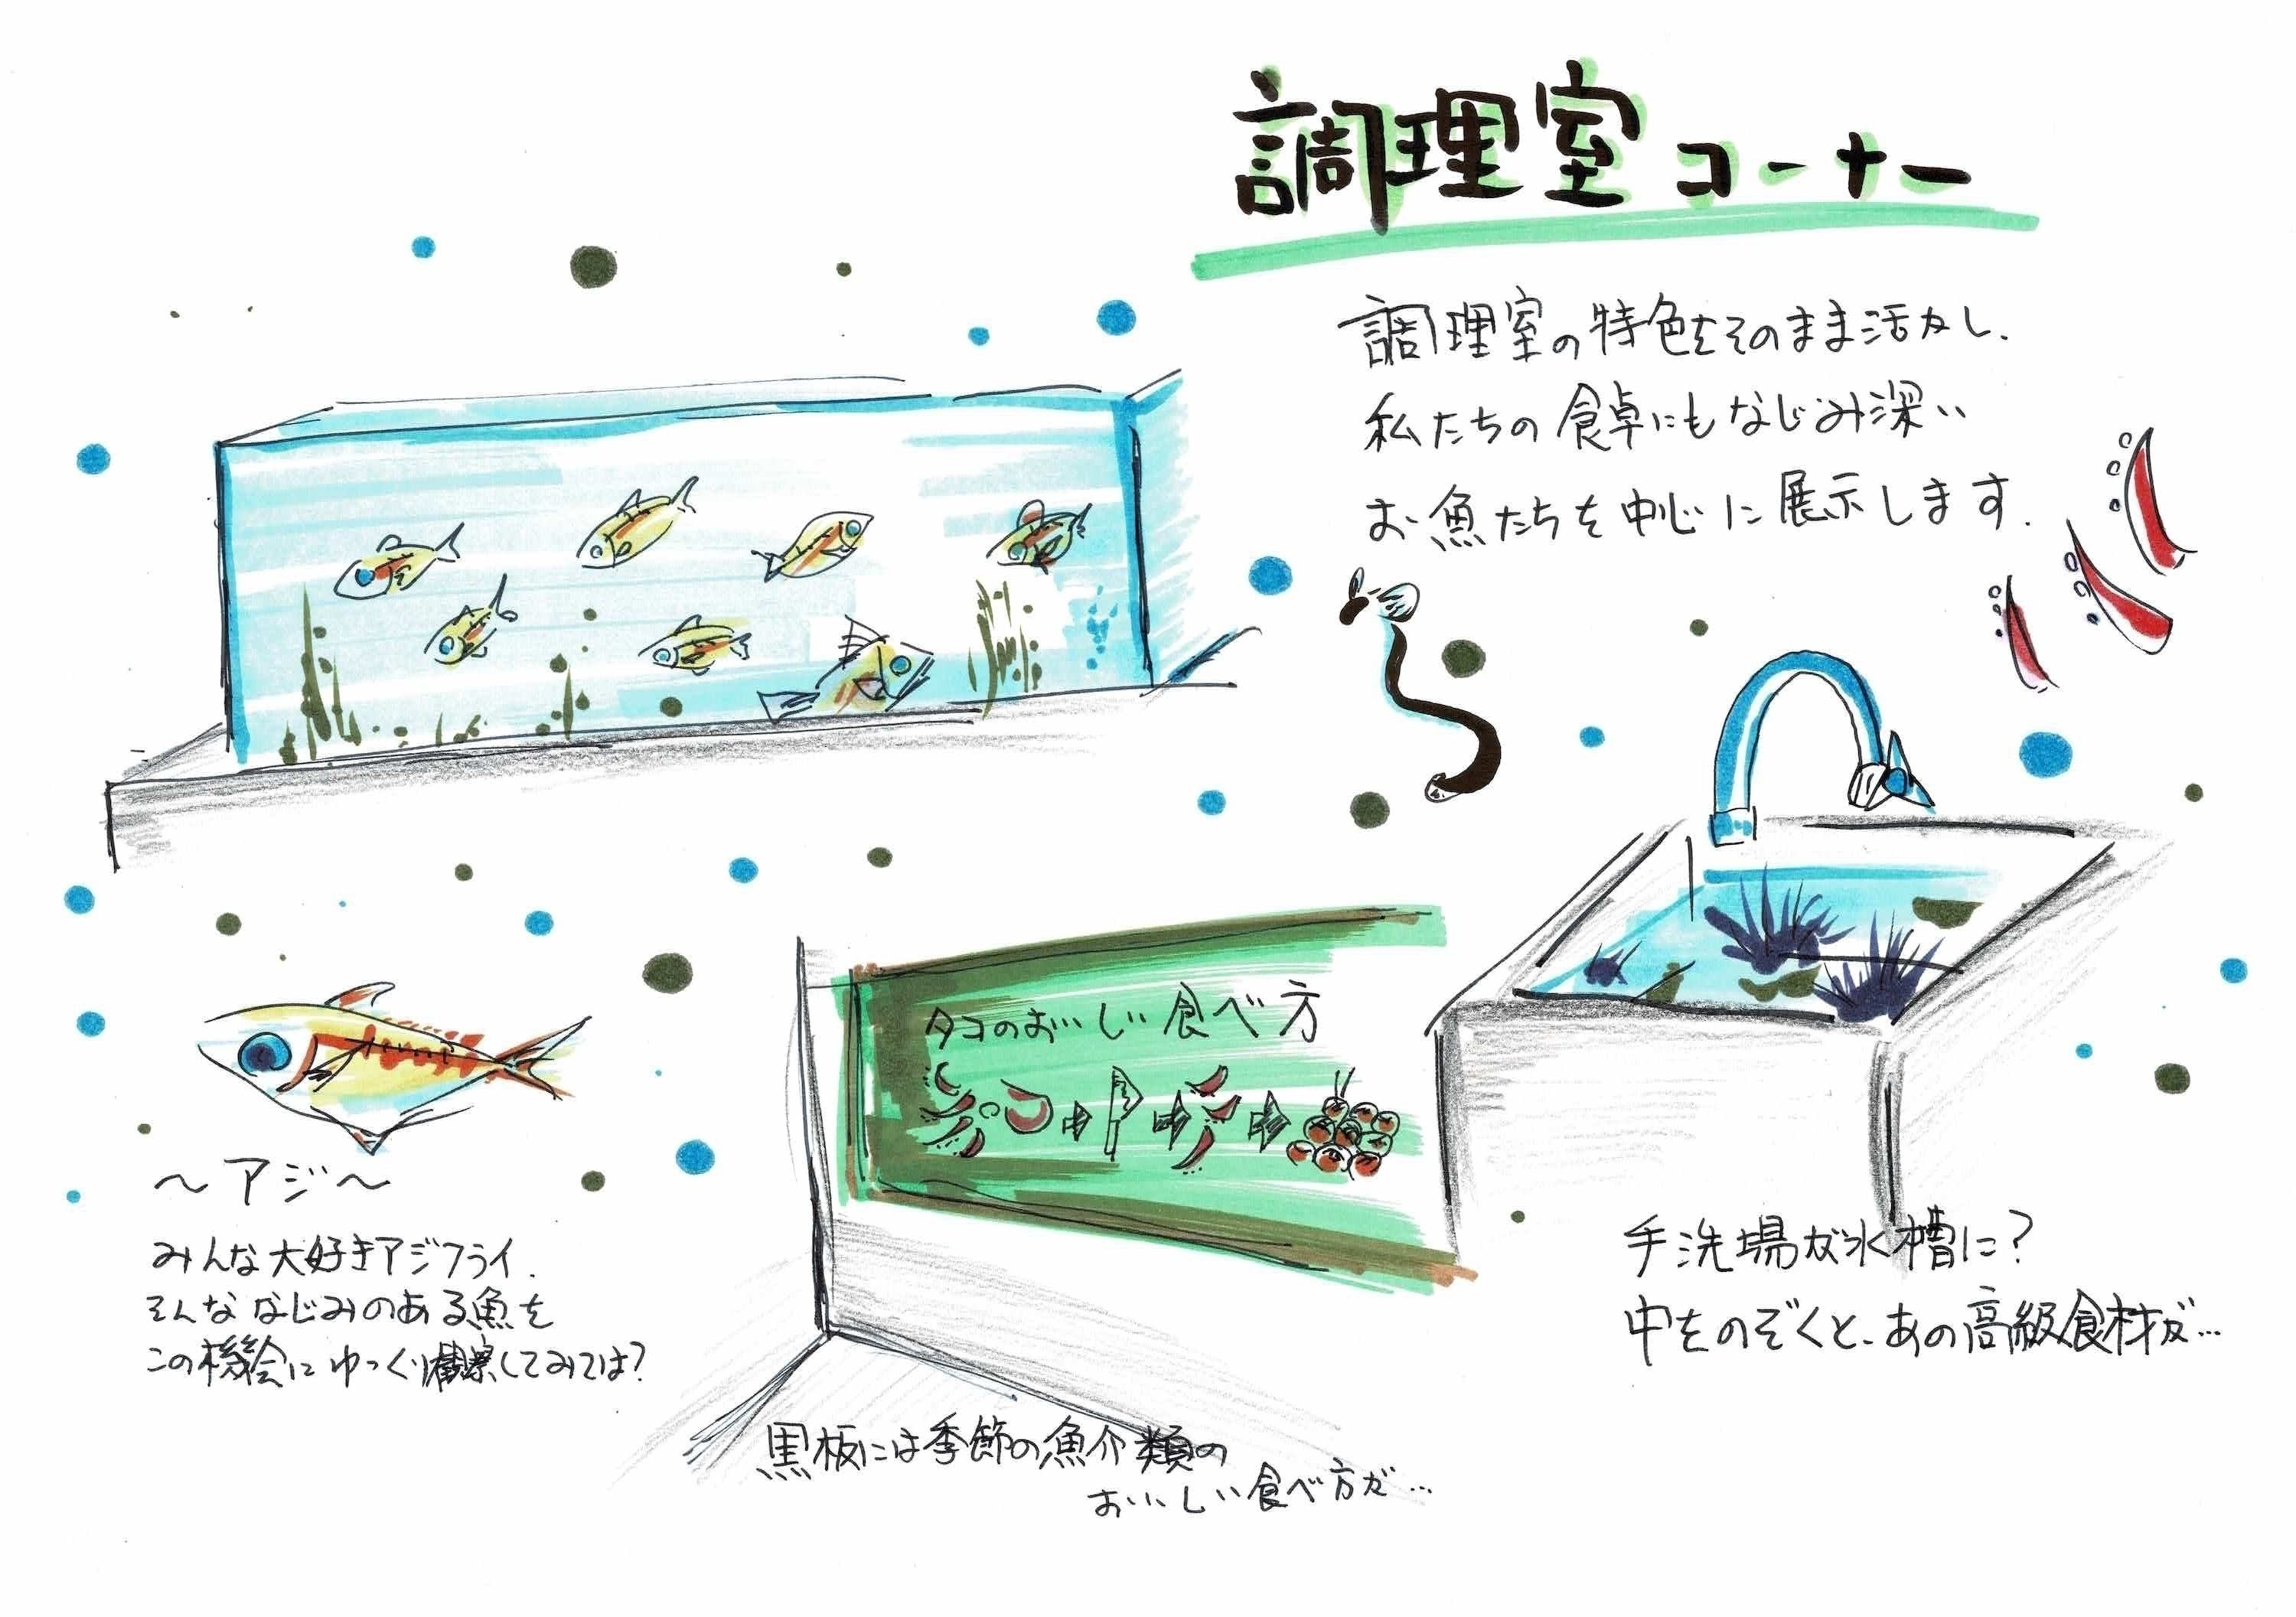 調理室コーナー
調理室の特色をそのまま活かし、
私たちの食卓にもなじみ深い
お魚たちを中心に展示します.
タコのおいしい食べ方
～アジ～
みんな大好きアジフライ.
そんななじみのある魚を
この機会にゆっくり観察してみては?
黒板には季節の魚介類の
おいしい食べ方が…
手洗場が水槽に?
中をのぞくと、あの高級食材が…